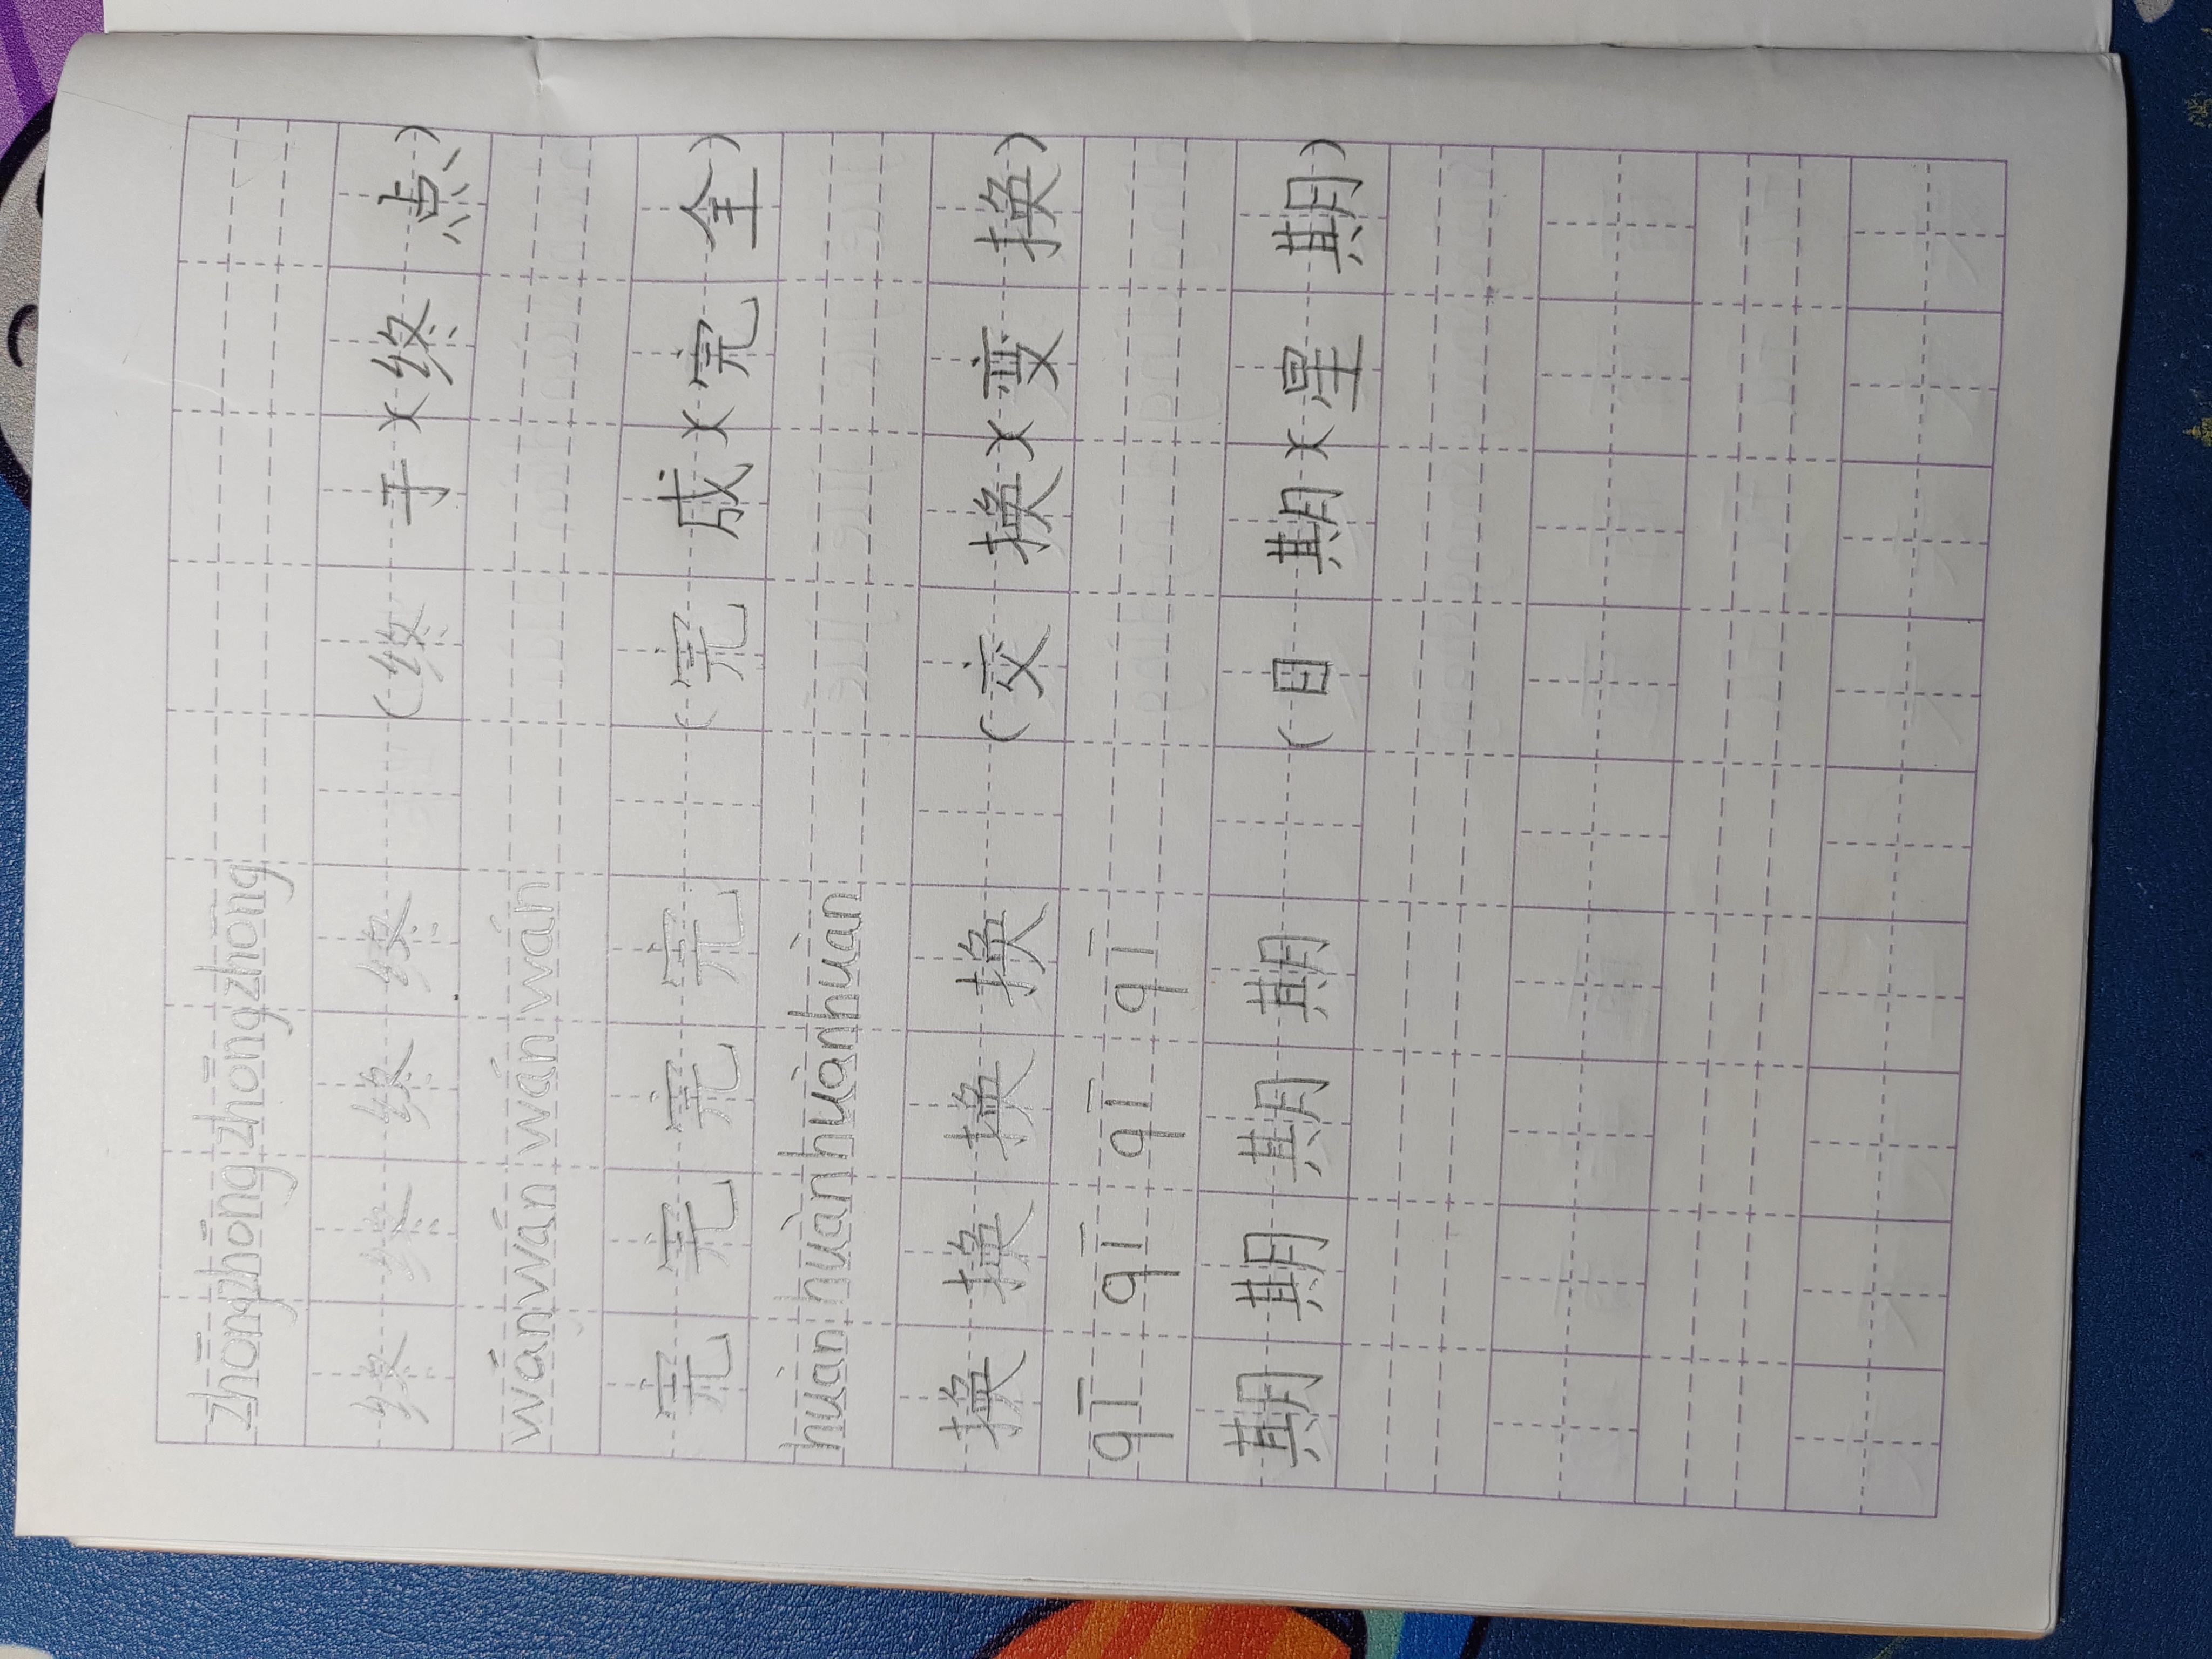 zhōngzhōngzhōngzhōng
终 终 终 终 (终 于)(终 点)
wánwánwánwán
完 完 完 完 (完 成)(完 全)
huànhuànhuànhuàn
换 换 换 换 (交 换)(变 换)
qī qī qī qī
期 期 期 期 (目 期)(星 期)